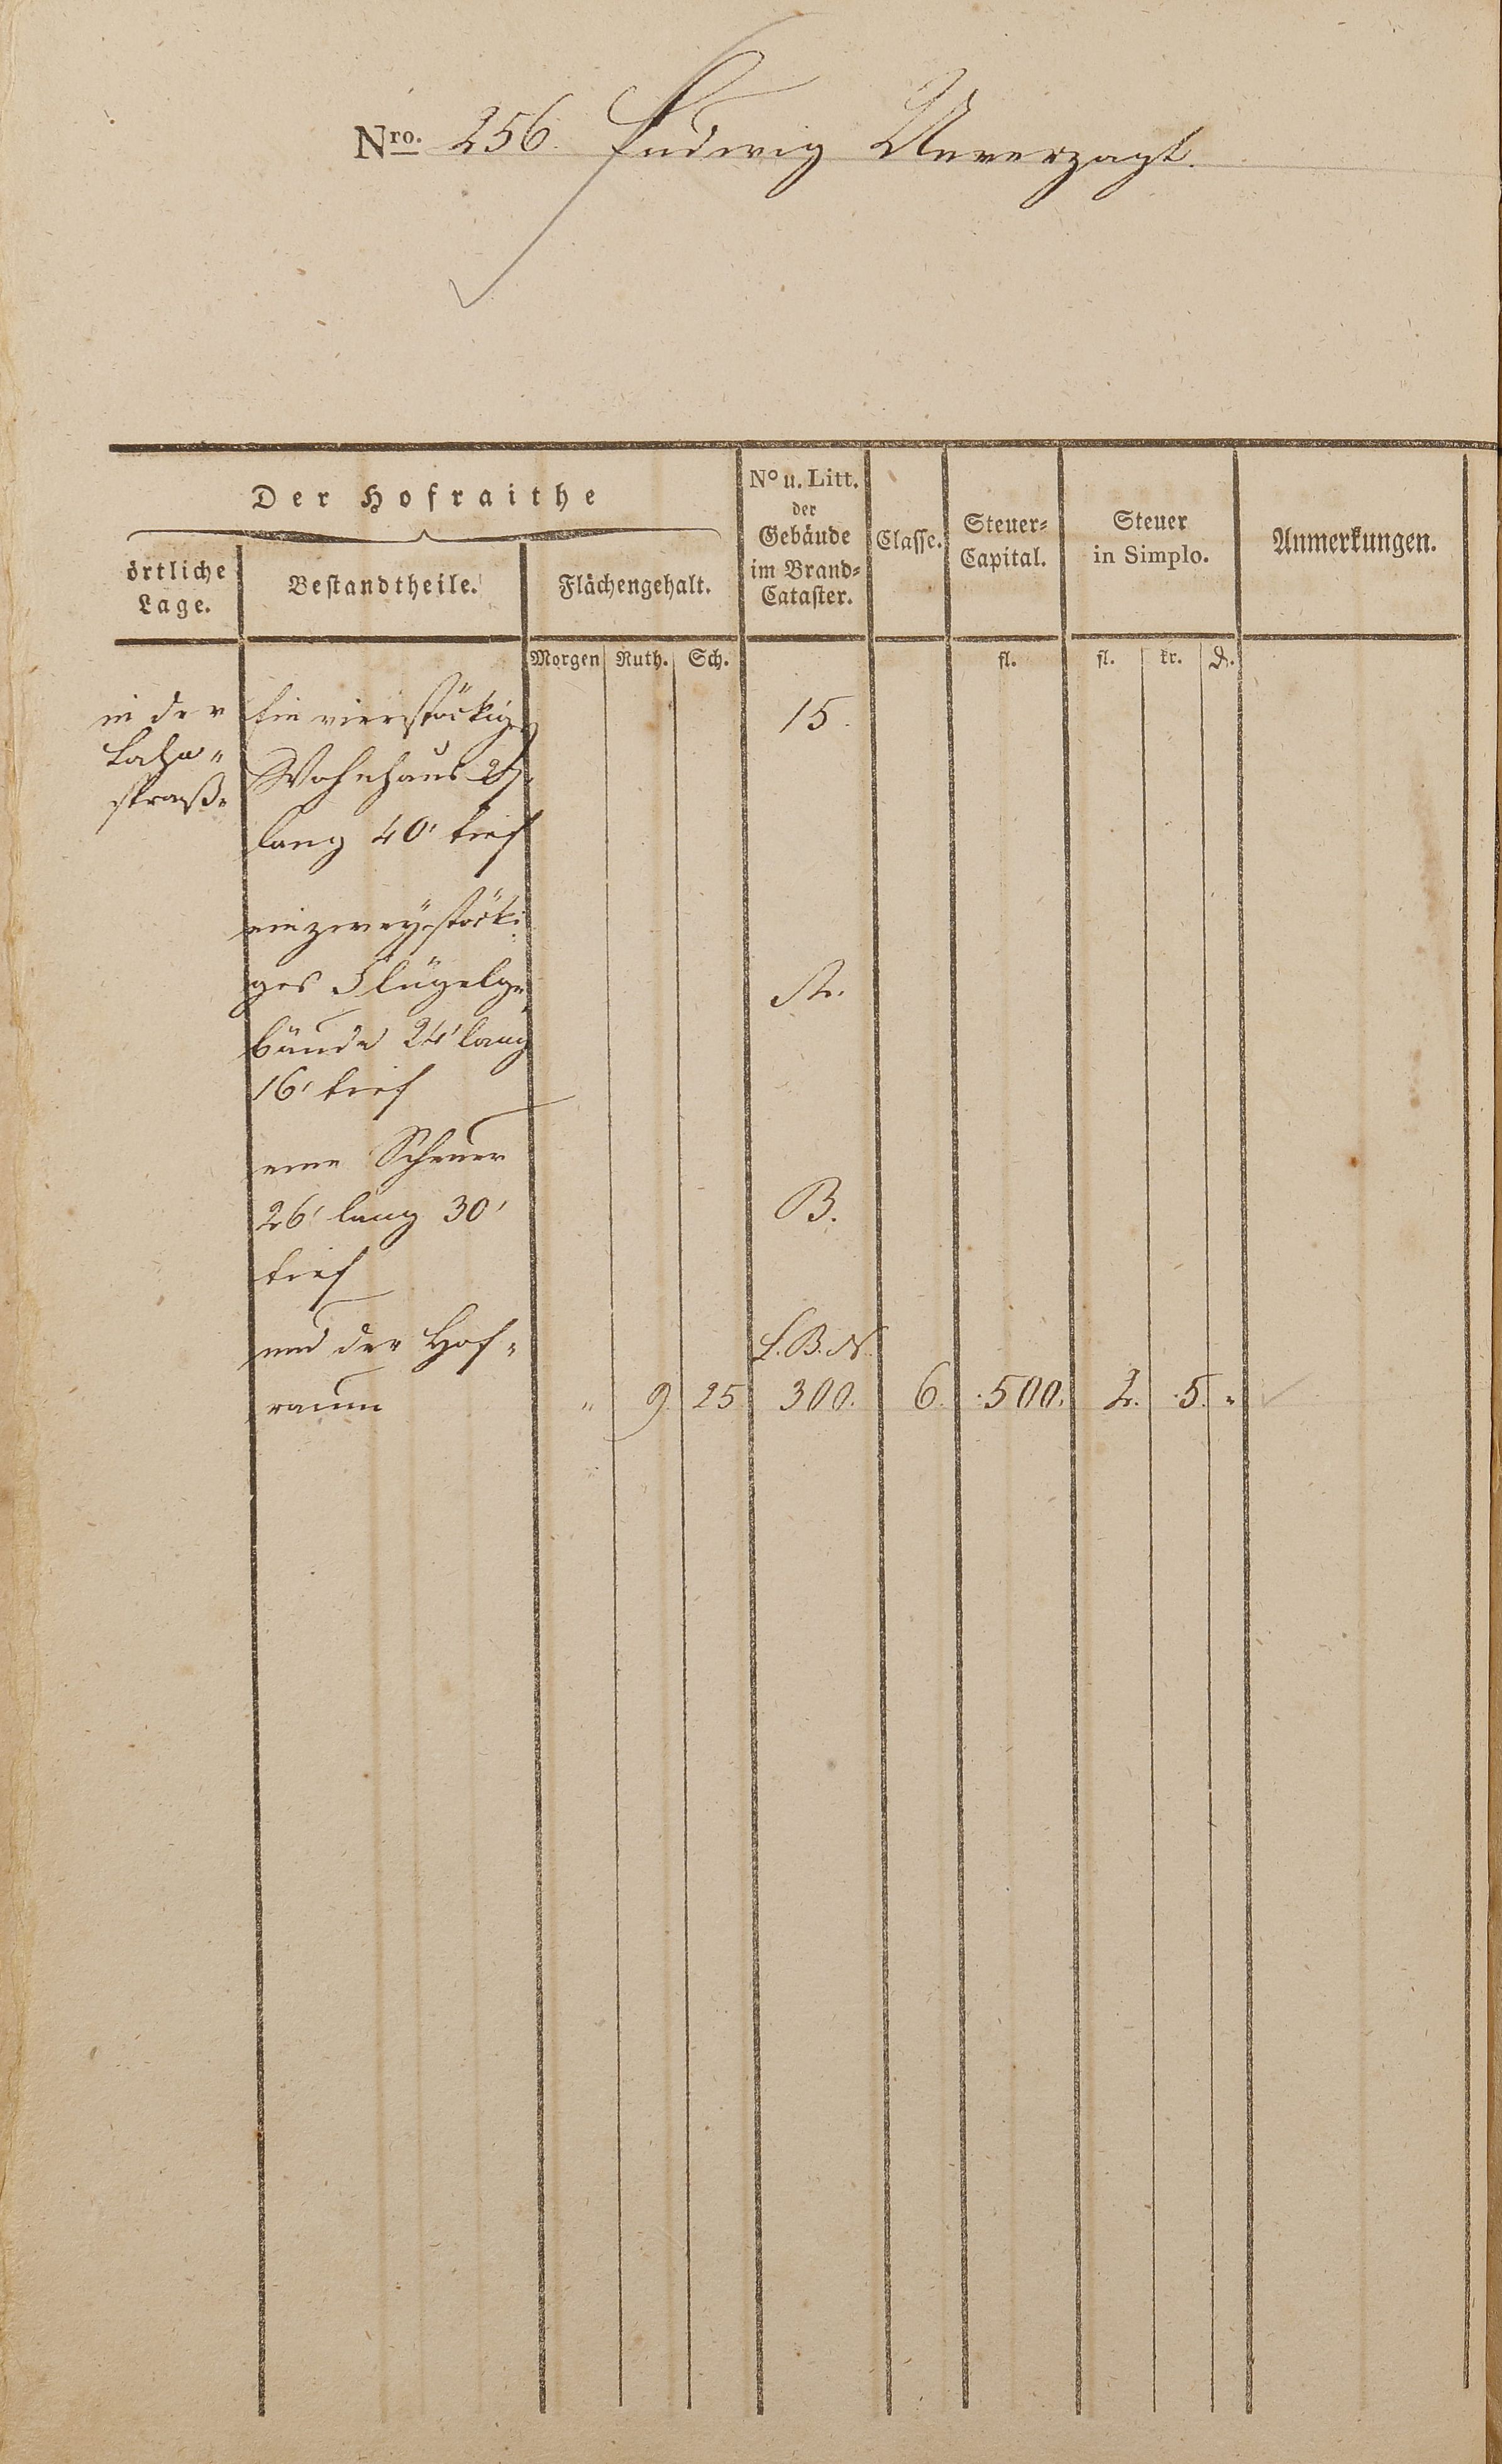 Nro. 256. Ludwig Unverzagt.
Der Hofraithe
örtliche Lage.
Bestandtheile.
Flächengehalt.
No u. Litt. der Gebäude im Brand-Cataster.
Classe.
Steuer-Capital.
Steuer in Simplo.
Anmerkungen.
Morgen Ruth. Sch. fl. fl. kr. d.
in der
Lahn-
straße
Ein vierstöckiges 15.
Wohnhaus
lang 40' tief
ein zweystöcki-
ges Flügelge- A.
bäude 24' lang
16' tief
eine Scheuer
26' lang 30' B.
tief
und der Hof- L.B.N.
raum " 9. 25 300. 6. 500. 2. 5. "